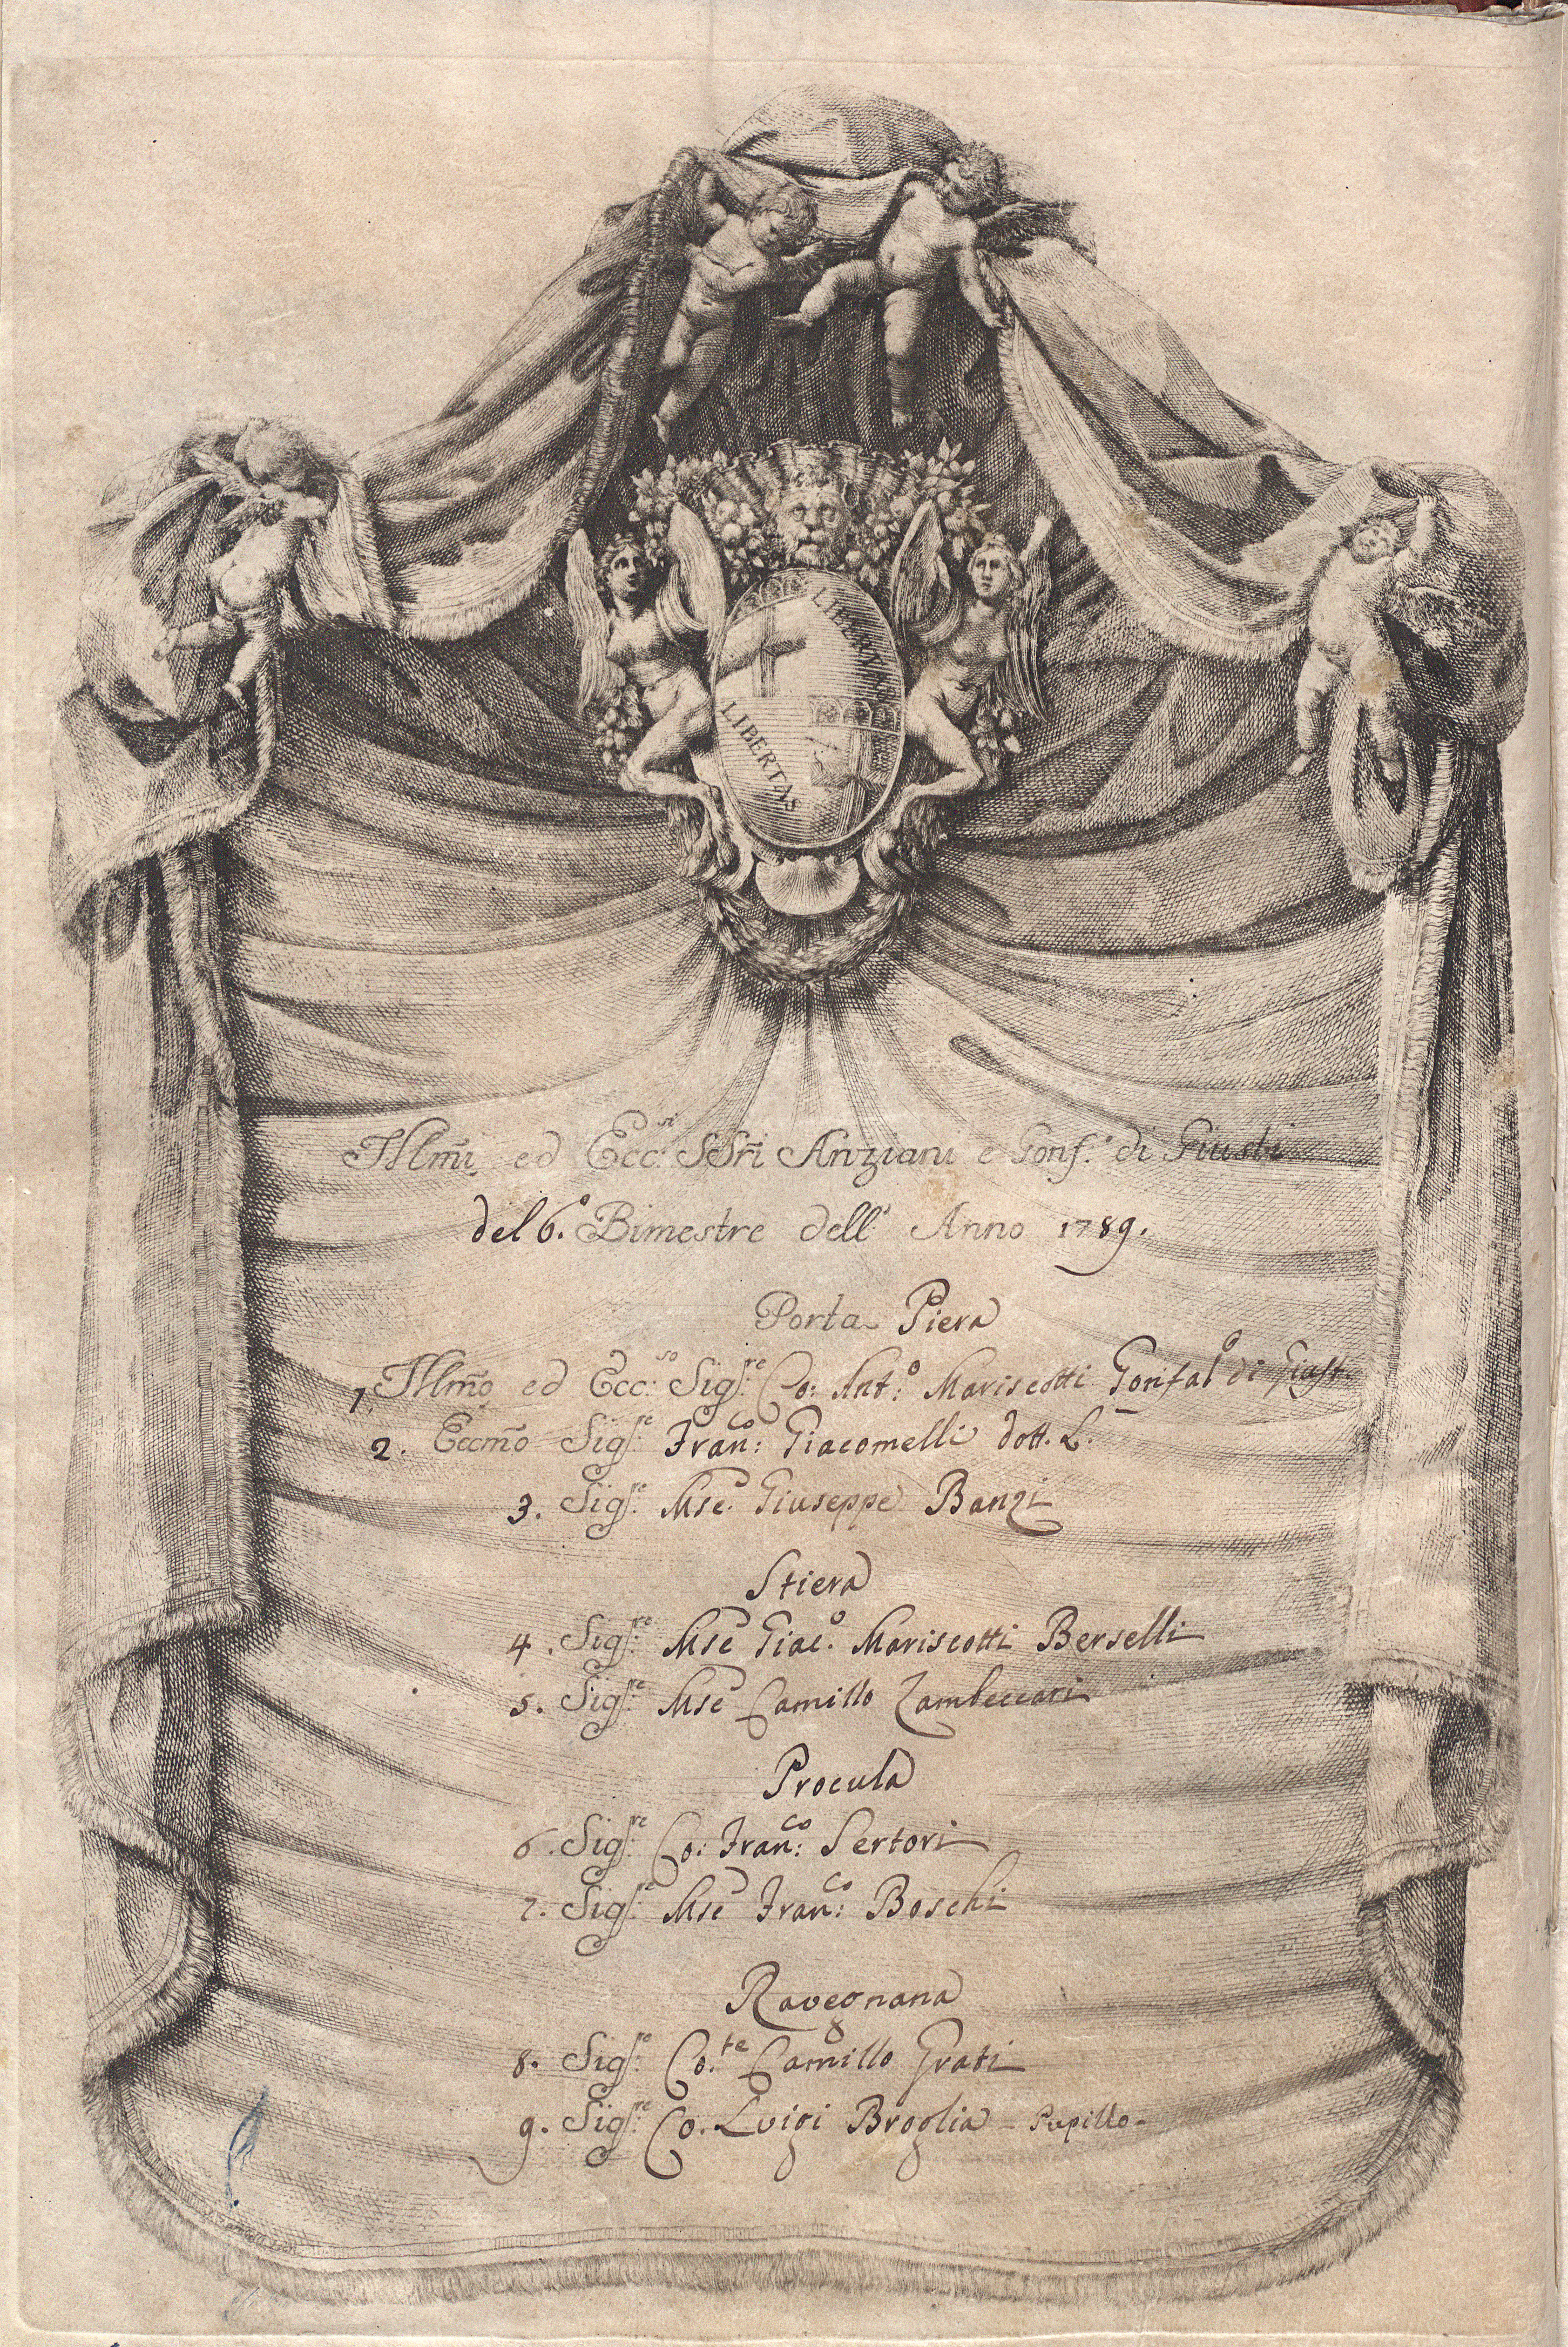 LIBERTAS
LIBERTAS
Illm̃i ed Ecc:si SSri Anziani e Gonf.e di Giusti
del 6.o Bimestre dell' Anno 1789.
Porta Piera
1. Illm̃o ed Ecc:so Sig.re Co: Ant:o Mariscotti Gonfal.o di Giust.
2. Eccm̃o Sig.re Fran:co Giacomelli Dott. L.
3. Sig.re Mse. Giuseppe Banzi
Stiera
4. Sig.re Mse Giac.o Mariscotti Berselli
5. Sig.re Mse Camillo Zambeccari
Procula
6. Sig.re Co: Fran:co Sertori
7. Sig.re Mse Fran:co Boschi
Ravegnana
8. Sig.re Co.te Camillo Grati
9. Sig.re Co. Luigi Broglia - Pupillo -